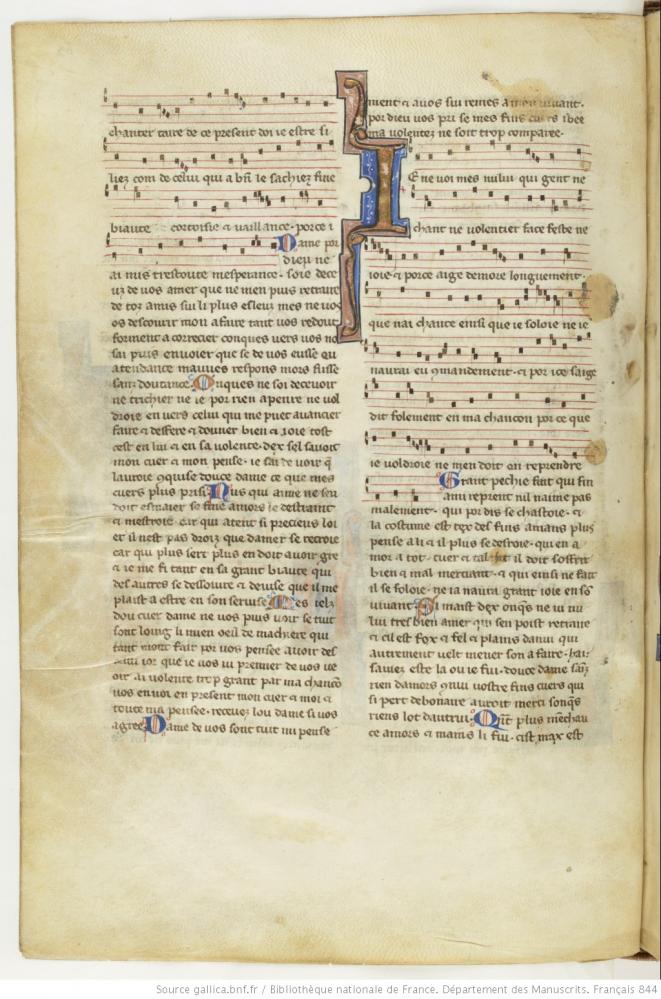 chanter faire de ce present don ie estre si
liez com de celui qui a bn̄ le sachiez fine
biaute cortoisie ⁊ vaillance. por ce i
Dame por
dieu ne
ai mis trestoute mesperance. soie dece
uz de vos amer que ne men puis retraire
de toz amis sui li plus esleuz mes ne vos
os descourir mon afaire tant vos redout
forment a correcier conques vers vos no
sai puis enuoier que se de vos eusse en
atendance mauues respons mors fusse
sanz doutance. Onques ne soi deceuoir
ne trichier ne ie por rien aprenre ne vol
droie en vers celui qui me puet auancier
faire ⁊ deffere ⁊ douner bien ⁊ ioie tost
cest en lui ⁊ en sa volente. dex sel sauoit
mon cuer ⁊ mon pense. ie sai de voir q̄
lauroie 9quise douce dame ce que mes
cuers plus prise. Nus qui aime ne sen
doit esmaier se fine amors le destraint
⁊ mestroie. car qui atent si precieus loi
er il nest pas droiz que damer se recroie
car qui plus sert plus en doit auoir gre
⁊ ie me fi tant en sa grant biaute qui
des autres se dessoiure ⁊ deuise que il me
plaist a estre en son seruise. Mes ielz
dou cuer dame ne vos puis voir se tuit
sont loing li mien oeil de ma chiere qui
tant mont fait por vos pensee auoir des
ior que ie vos vi premier de vos ve
oir ai volente trop grant par ma chancō
vos enuoi en present mon cuer ⁊ moi ⁊
toute ma pensee. receuez lou dame si vos
agree. Dame de vos sont tuit mi pense
ment ⁊ a vos sui remes a mon viuant.
por dieu vos pri se mes fins cuers i bee
ma volentez ne soit trop comparee.
IE ne voi mes nului qui gent ne
chant ne volentier face feste ne
ioie ⁊ por ce ai ge demore longuement
que nai chante ensi que ie soloie ne ie
naurai eu 9mandement. ⁊ por ice sai ge
dit folement en ma chancon por ce que
ie voldroie ne men doit on reprendre
Grant pechie fait qui fin
ami reprent nil naime pas
malement. qui por dis se chastoie. ⁊
la costume est tex des fins amans plus
pense a li ⁊ il plus se desroie. qui en a
mor a tot cuer ⁊ talent il doit soffrir
bien ⁊ mal merciant. ⁊ qui einsi ne fait
il se foloie. ne ia naura grant ioie en so9
viuant. Si maist dex onq̄s ne vi nu
lui tres bien amer qui sen poist retraire
⁊ cil est fox ⁊ fel ⁊ plains danui qui
autrement velt mener son afaire. hai
sauiez este la ou ie fui. douce dame sanz
rien damors 9nui vostre fins cuers qui
si pert debonaire auroit merci sonq̄s
riens lot dautrui. Qn̄t plus mechau
ce amors ⁊ mains li fui. cist max est
Source gallica.bnf.fr / Bibliothèque nationale de France. Département des Manuscrits. Français 844